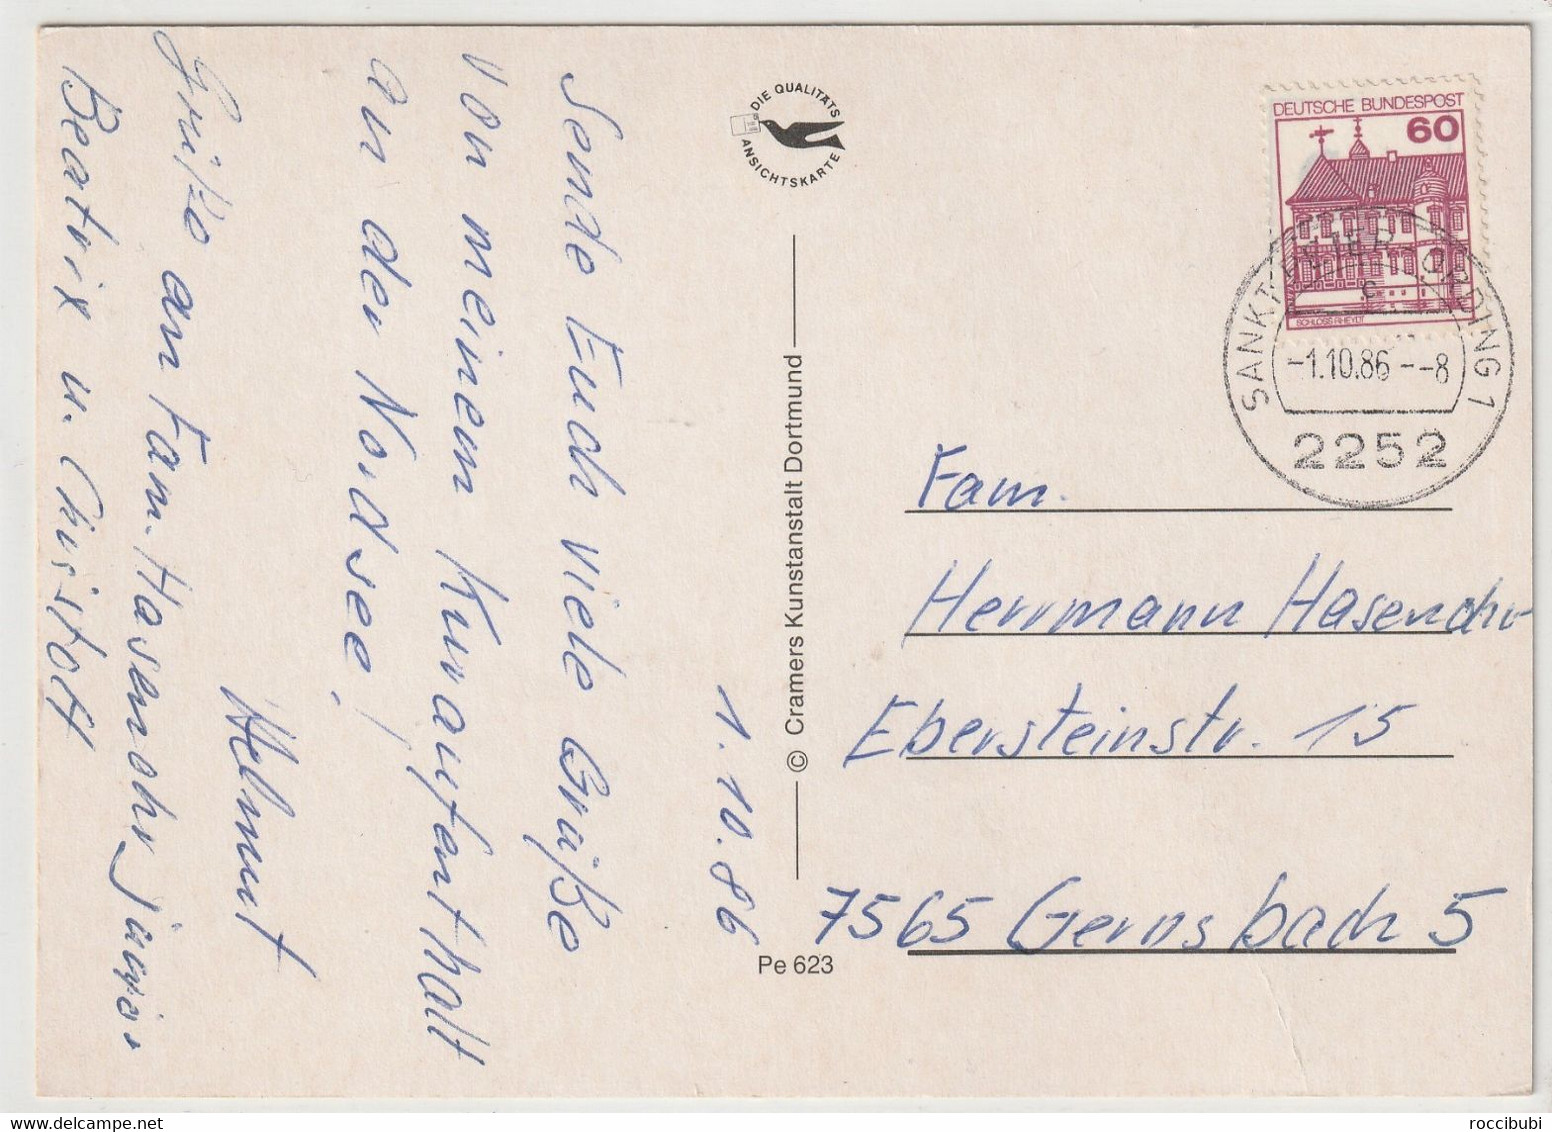 1.10.86
Sende Euch viele Grüße
von meinem Kuraufenthalt
an der Nordsee,
Helmut
Grüße an Fam. Hasenohr
Beatrix u. Christoff
DIE QUALITÄTS
ANSICHTSKARTE
© Cramers Kunstanstalt Dortmund
Pe 623
DEUTSCHE BUNDESPOST
60
SCHLOSS RHEYDT
SANKT PETER-ORDING 1
c
-1.10.86--8
2252
Fam.
Herrmann Hasenohr
Ebersteinstr. 15
7565 Gernsbach 5
roccibubi